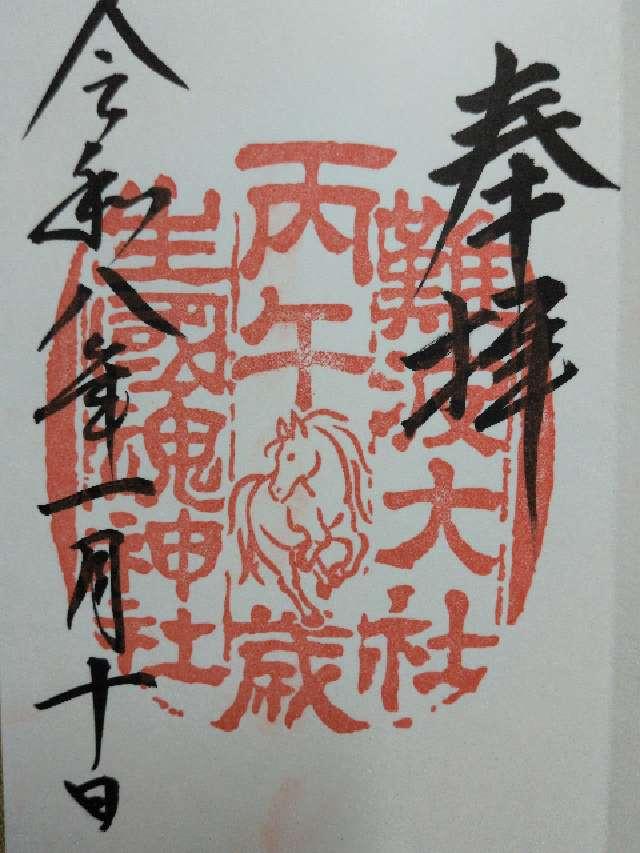 奉拝
難波大社
丙午歳
生國魂神社
令和八年一月十日